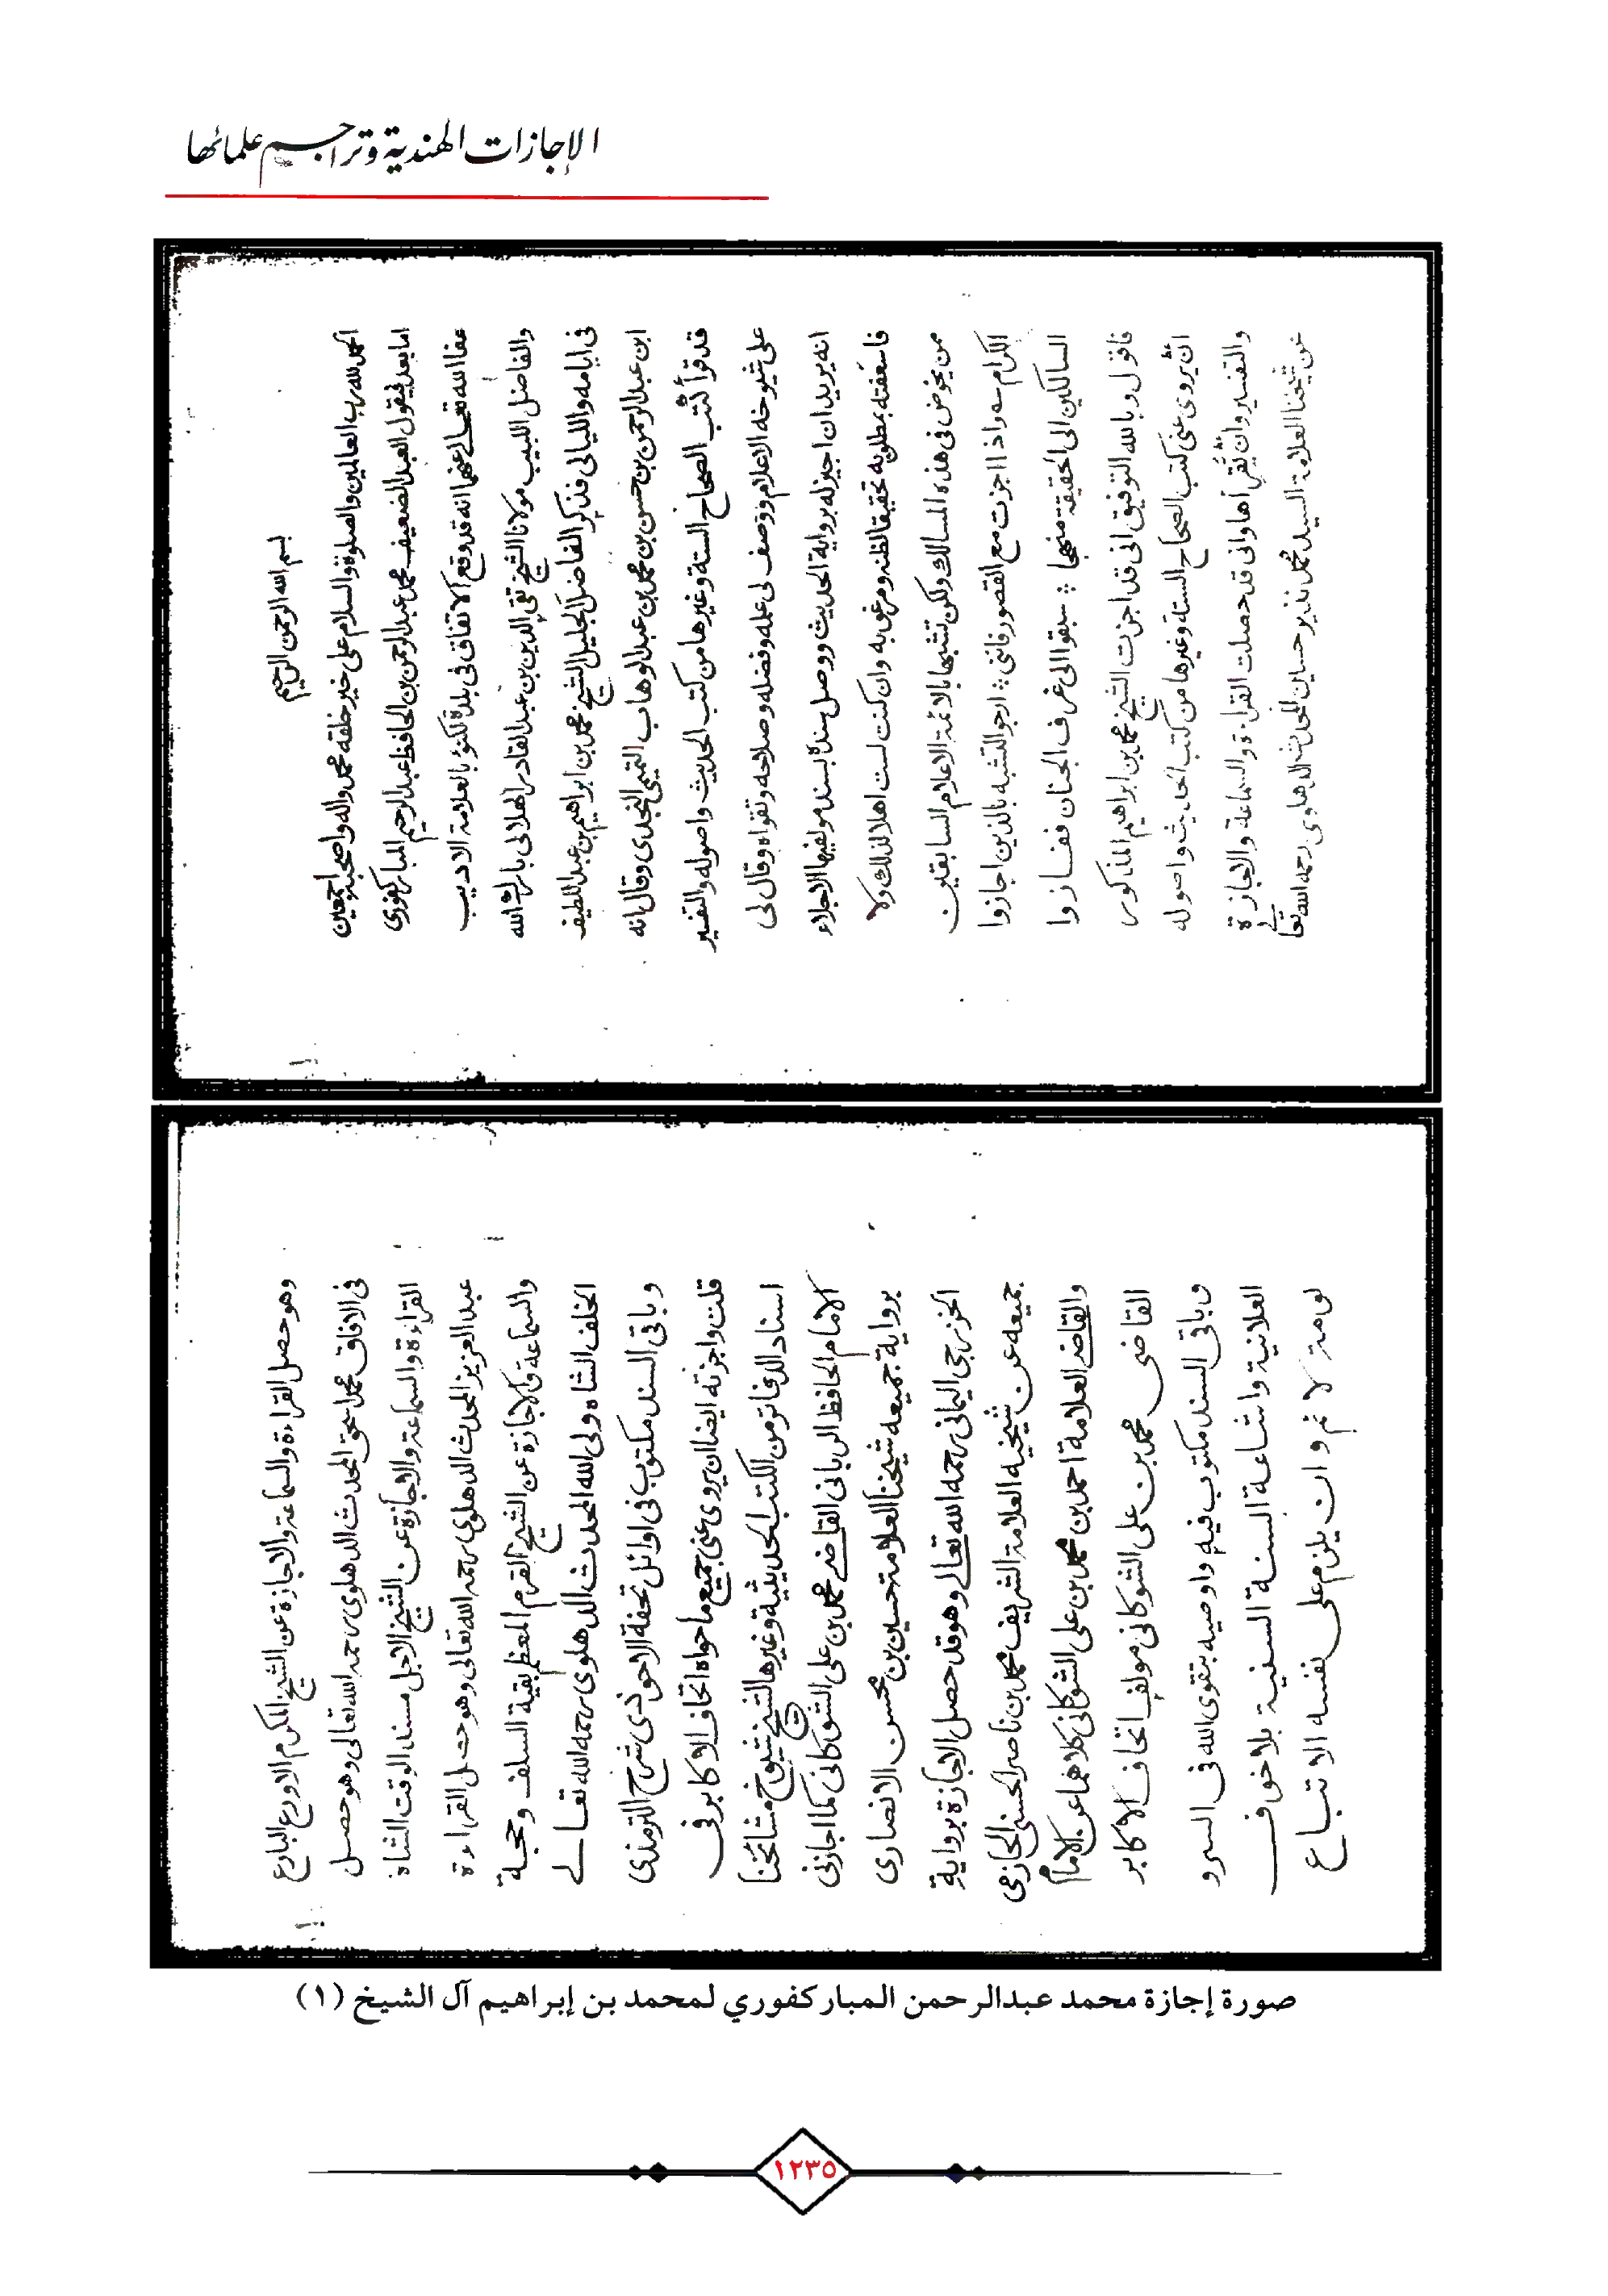 الإجازات الهندية وتراجم علمائها
بسم الله الرحمن الرحيم
الحمد لله رب العالمين والصلوة والسلام على خير خلقه محمد واله واصحبه اجمعين
اما بعد فيقول العبد الضعيف محمد عبد الرحمن بن الحافظ عبد الرحيم المباركفوري
عفا الله تعالى عنهما انه قد وقع الاتفاق في بلدة لكنؤ بالعلامة الاديب
والفاضل اللبيب مولانا الشيخ تقي الدين بن عبد القادر الهلالي بارك الله
في ايامه والليالي فذكر الفاضل الجليل الشيخ محمد بن ابراهيم بن عبد اللطيف
ابن عبد الرحمن بن حسن بن محمد بن عبد الوهاب التميمي النجدي وقال انه
قد قرأ كتب الصحاح الستة وغيرها من كتب الحديث واصوله والتفسير
على شيوخه الاعلام ووصف لي علمه وفضله وصلاحه وتقواه وقال لي
انه يريد ان اجيز له برواية الحديث ووصل سنده بسند مولفيها الاجلاء
فاسعفته بمطلوبه تحقيقا لظنه ومرغوبه وان كنت لست اهلا لذلك ولا
ممن يخوض في هذه المسالك ولكن تشبها بالائمة الاعلام السابقين
الكرام ـه واذا اجزت مع القصور فانني ؞ ارجو التشبه بالذين اجازوا
السالكين الى الحقيقة منهجا ؞ سبقوا الى غرف الجنان ففازوا
فاقول وبالله التوفيق اني قد اجزت الشيخ محمد بن ابراهيم المذكور
ان يروي عني كتب الصحاح الستة وغيرها من كتب الحديث واصوله
والتفسير وان يقرأها واني قد حصلت القراءة والسماعة والاجازة
عن شيخنا العلامة السيد محمد نذير حسين المحدث الدهلوي رحمه الله تعالى
وهو حصل القراءة والسماعة والاجازة عن الشيخ المكرم الاورع البارع
في الافاق محمد اسحق المحدث الدهلوي رحمه الله تعالى وهو حصل
القراءة والسماعة والاجازة عن الشيخ الاجل مسند الوقت الشاه
عبد العزيز المحدث الدهلوي رحمه الله تعالى وهو حصل القراءة
والسماعة والاجازة عن الشيخ القرم المعظم بقية السلف وحجة
الخلف الشاه ولي الله المحدث الدهلوي رحمه الله تعالى
وباقي السند مكتوب في اوائل تحفة الاحوذي شرح الترمذي
قلت واجزته ايضا ان يروي عني جميع ما حواه اتحاف الاكابر في
اسناد الدفاتر من الكتب الحديثية وغيرها لشيخ شيوخ مشائخنا
الامام الحافظ الرباني القاضي محمد بن علي الشوكاني كما اجازني
برواية جميعه شيخنا العلامة حسين بن محسن الانصاري
الخزرجي اليماني رحمه الله تعالى وهو قد حصل الاجازة برواية
جميعه عن شيخيه العلامة الشريف محمد بن ناصر الحسني الحازمي
والقاضي العلامة احمد بن محمد بن علي الشوكاني كلاهما عن الامام
القاضي محمد بن علي الشوكاني مولف اتحاف الاكابر
وباقي السند مكتوب فيه واوصيه بتقوى الله في السر و
العلانية واشاعة السنة السنية بلا خوف
لومة لائم وان يلزم على نفسه الاتباع
صورة إجازة محمد عبدالرحمن المباركفوري لمحمد بن إبراهيم آل الشيخ (١)
١٢٣٥